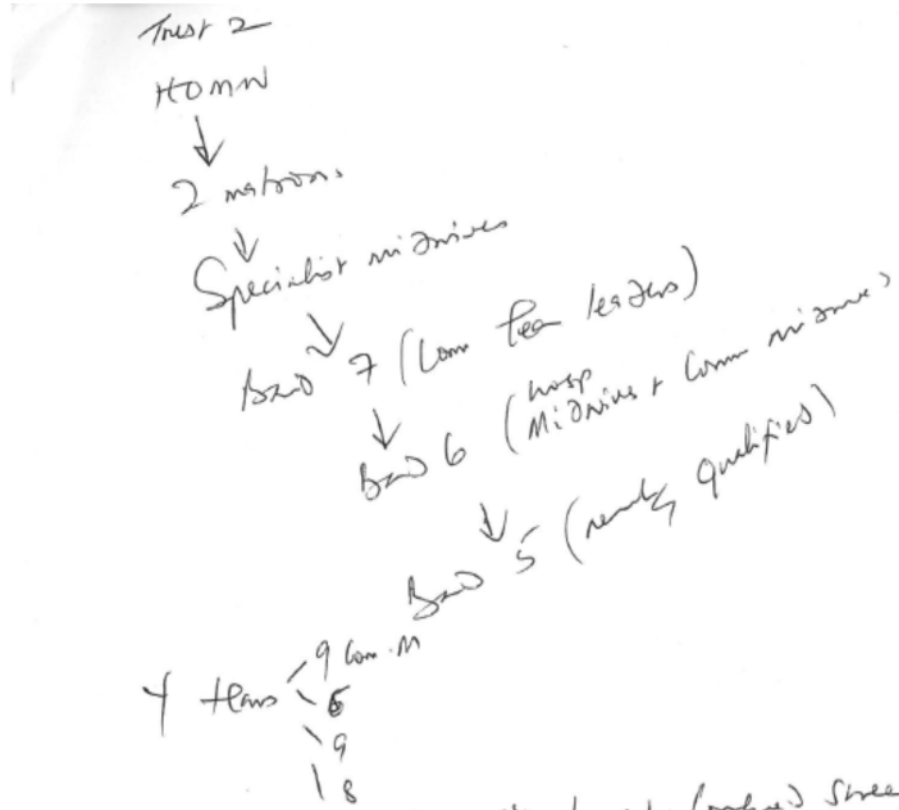 Trust 2
HOMW
2 matrons
Specialist midwives
Band 7 (Com team leaders)
Band 6 (hosp Midwives + Comm midwives)
Band 5 (newly qualified)
4 teams 9 Com. M
9
8